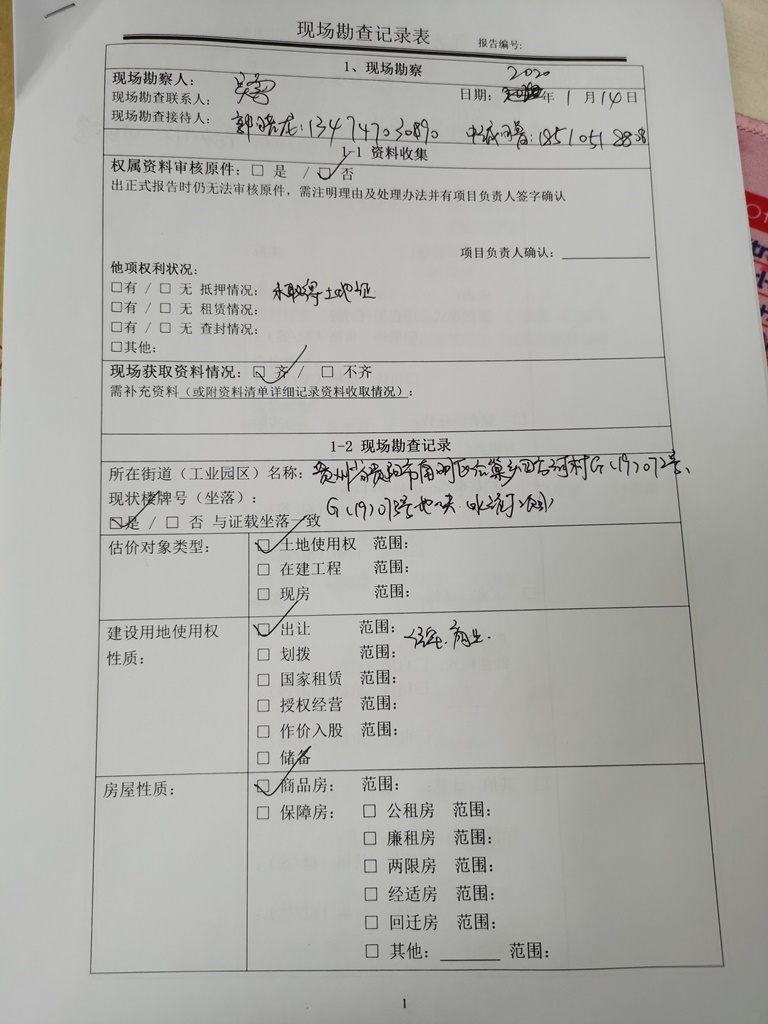 现场勘查记录表
报告编号:
1、现场勘察
现场勘察人:
2020
日期: 年 1 月 14 日
现场勘查联系人:
现场勘查接待人: 13474703090 18510512808
1-1 资料收集
权属资料审核原件: □ 是 / ☑ 否
出正式报告时仍无法审核原件，需注明理由及处理办法并有项目负责人签字确认
项目负责人确认: ________
他项权利状况:
□有 / □ 无 抵押情况: 未取得土地证
□有 / □ 无 租赁情况:
□有 / □ 无 查封情况:
□其他:
现场获取资料情况: ☑ 齐 / □ 不齐
需补充资料（或附资料清单详细记录资料收取情况）:
1-2 现场勘查记录
所在街道（工业园区）名称: 贵州省贵阳市南明区云关乡 村G(19)072号、
现状楼牌号（坐落）: G(19)073号地块
☑是 / □ 否 与证载坐落一致
估价对象类型:
☑ 土地使用权 范围:
□ 在建工程 范围:
□ 现房 范围:
建设用地使用权
性质:
☑ 出让 范围: 住宅、商业.
□ 划拨 范围:
□ 国家租赁 范围:
□ 授权经营 范围:
□ 作价入股 范围:
□ 储备
房屋性质:
☑ 商品房: 范围:
□ 保障房: □ 公租房 范围:
□ 廉租房 范围:
□ 两限房 范围:
□ 经适房 范围:
□ 回迁房 范围:
□ 其他: ______ 范围:
1